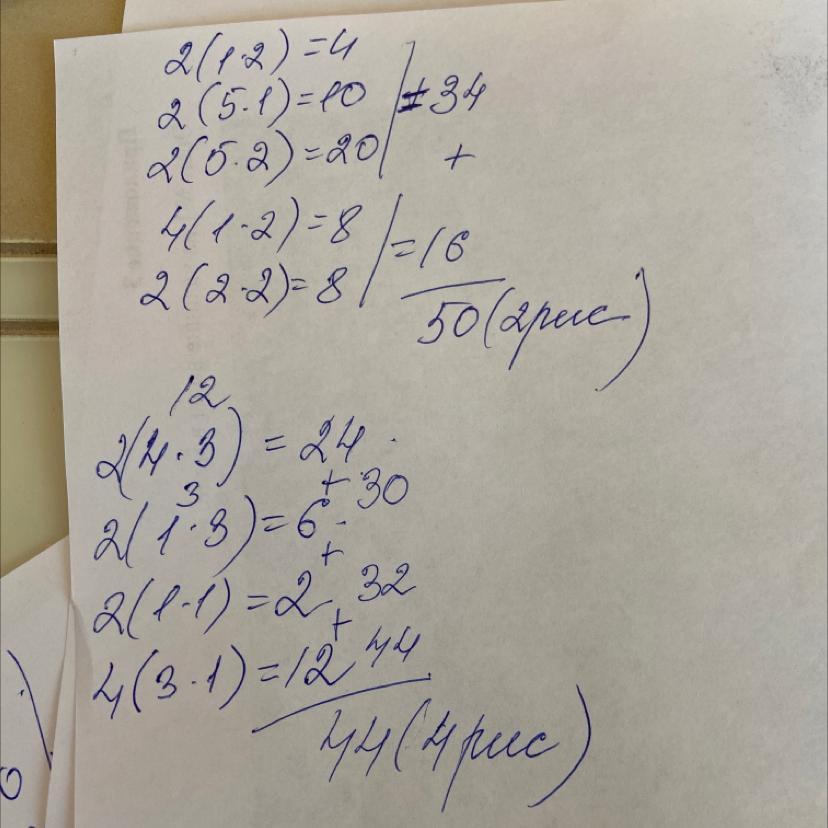 2(1·2) = 4
2(5·1) = 10 = 34
2(5·2) = 20 +
4(1·2) = 8
= 16
2(2·2) = 8
50 (2 рис)
12
2(4·3) = 24
3 + 30
2(1·3) = 6
+
2(1·1) = 2 32
+
4(3·1) = 12 44
44 (4 рис)